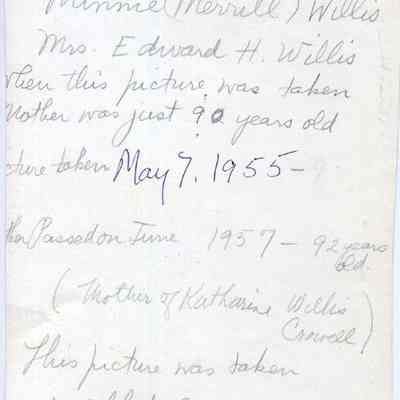 Minnie (Merrill) Willis
Mrs. Edward H. Willis
when this picture was taken
Mother was just 90 years old
cture taken May 7, 1955 -
ther Passed on June 1957 - 92 years
old.
(Mother of Katharine Willis
Crowell)
This picture was taken